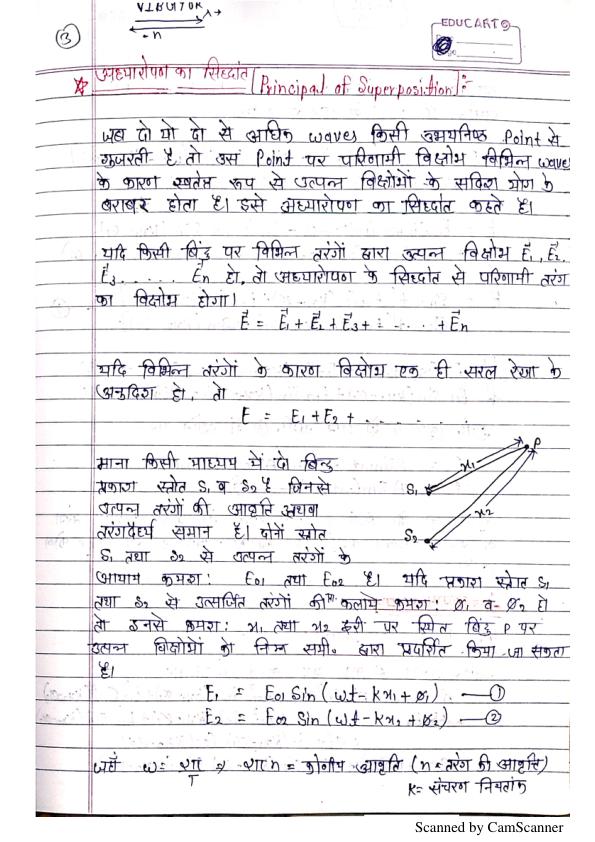 VIBRITOR
λ→
←n
③
EDUCART
अध्यारोपण का सिध्दांत (Principal of Superposition):-
जब दो या दो से अधिक waves किसी उभयनिष्ठ Point से
गुजरती है तो उस Point पर परिणामी विक्षोभ विभिन्न waves
के कारण स्वतंत्र रूप से उत्पन्न विक्षोभों के सदिश योग के
बराबर होता है। इसे अध्यारोपण का सिध्दांत कहते है।
यदि किसी बिंदु पर विभिन्न तरंगों द्वारा उत्पन्न विक्षोभ E⃗₁, E⃗₂
E⃗₃ . . . . . . E⃗n हो, तो अध्यारोपण के सिध्दांत से परिणामी तरंग
का विक्षोभ होगा।
E⃗ = E⃗₁ + E⃗₂ + E⃗₃ + . . . . . + E⃗n
यदि विभिन्न तरंगों के कारण विक्षोभ एक ही सरल रेखा के
अनुदिश हो, तो
E = E₁ + E₂ + . . . . . . . . . .
माना किसी माध्यम में दो बिन्दु
प्रकाश स्त्रोत S₁ व S₂ है जिनसे
उत्पन्न तरंगों की आवृति अथवा
तरंगदैर्ध्य समान है। दोनों स्त्रोत
S₁ तथा S₂ से उत्पन्न तरंगों के
P
x₁
S₁
x₂
S₂
आयाम क्रमश: E₀₁ तथा E₀₂ है। यदि प्रकाश स्त्रोत S₁
तथा S₂ से उत्सर्जित तरंगों की कलायें क्रमश: ø₁ व ø₂ हो
तो इनसे क्रमश: x₁ तथा x₂ दूरी पर स्थित बिंदु P पर
उत्पन्न विक्षोभों को निम्न समी. द्वारा प्रदर्शित किया जा सकता
है।
E₁ = E₀₁ Sin (ωt - kx₁ + ø₁) —①
E₂ = E₀₂ Sin (ωt - kx₂ + ø₂) —②
जहाँ ω = 2π/T = 2πn = कोणीय आवृति (n = तरंग की आवृत्ति)
K = संचरण नियतांक
Scanned by CamScanner